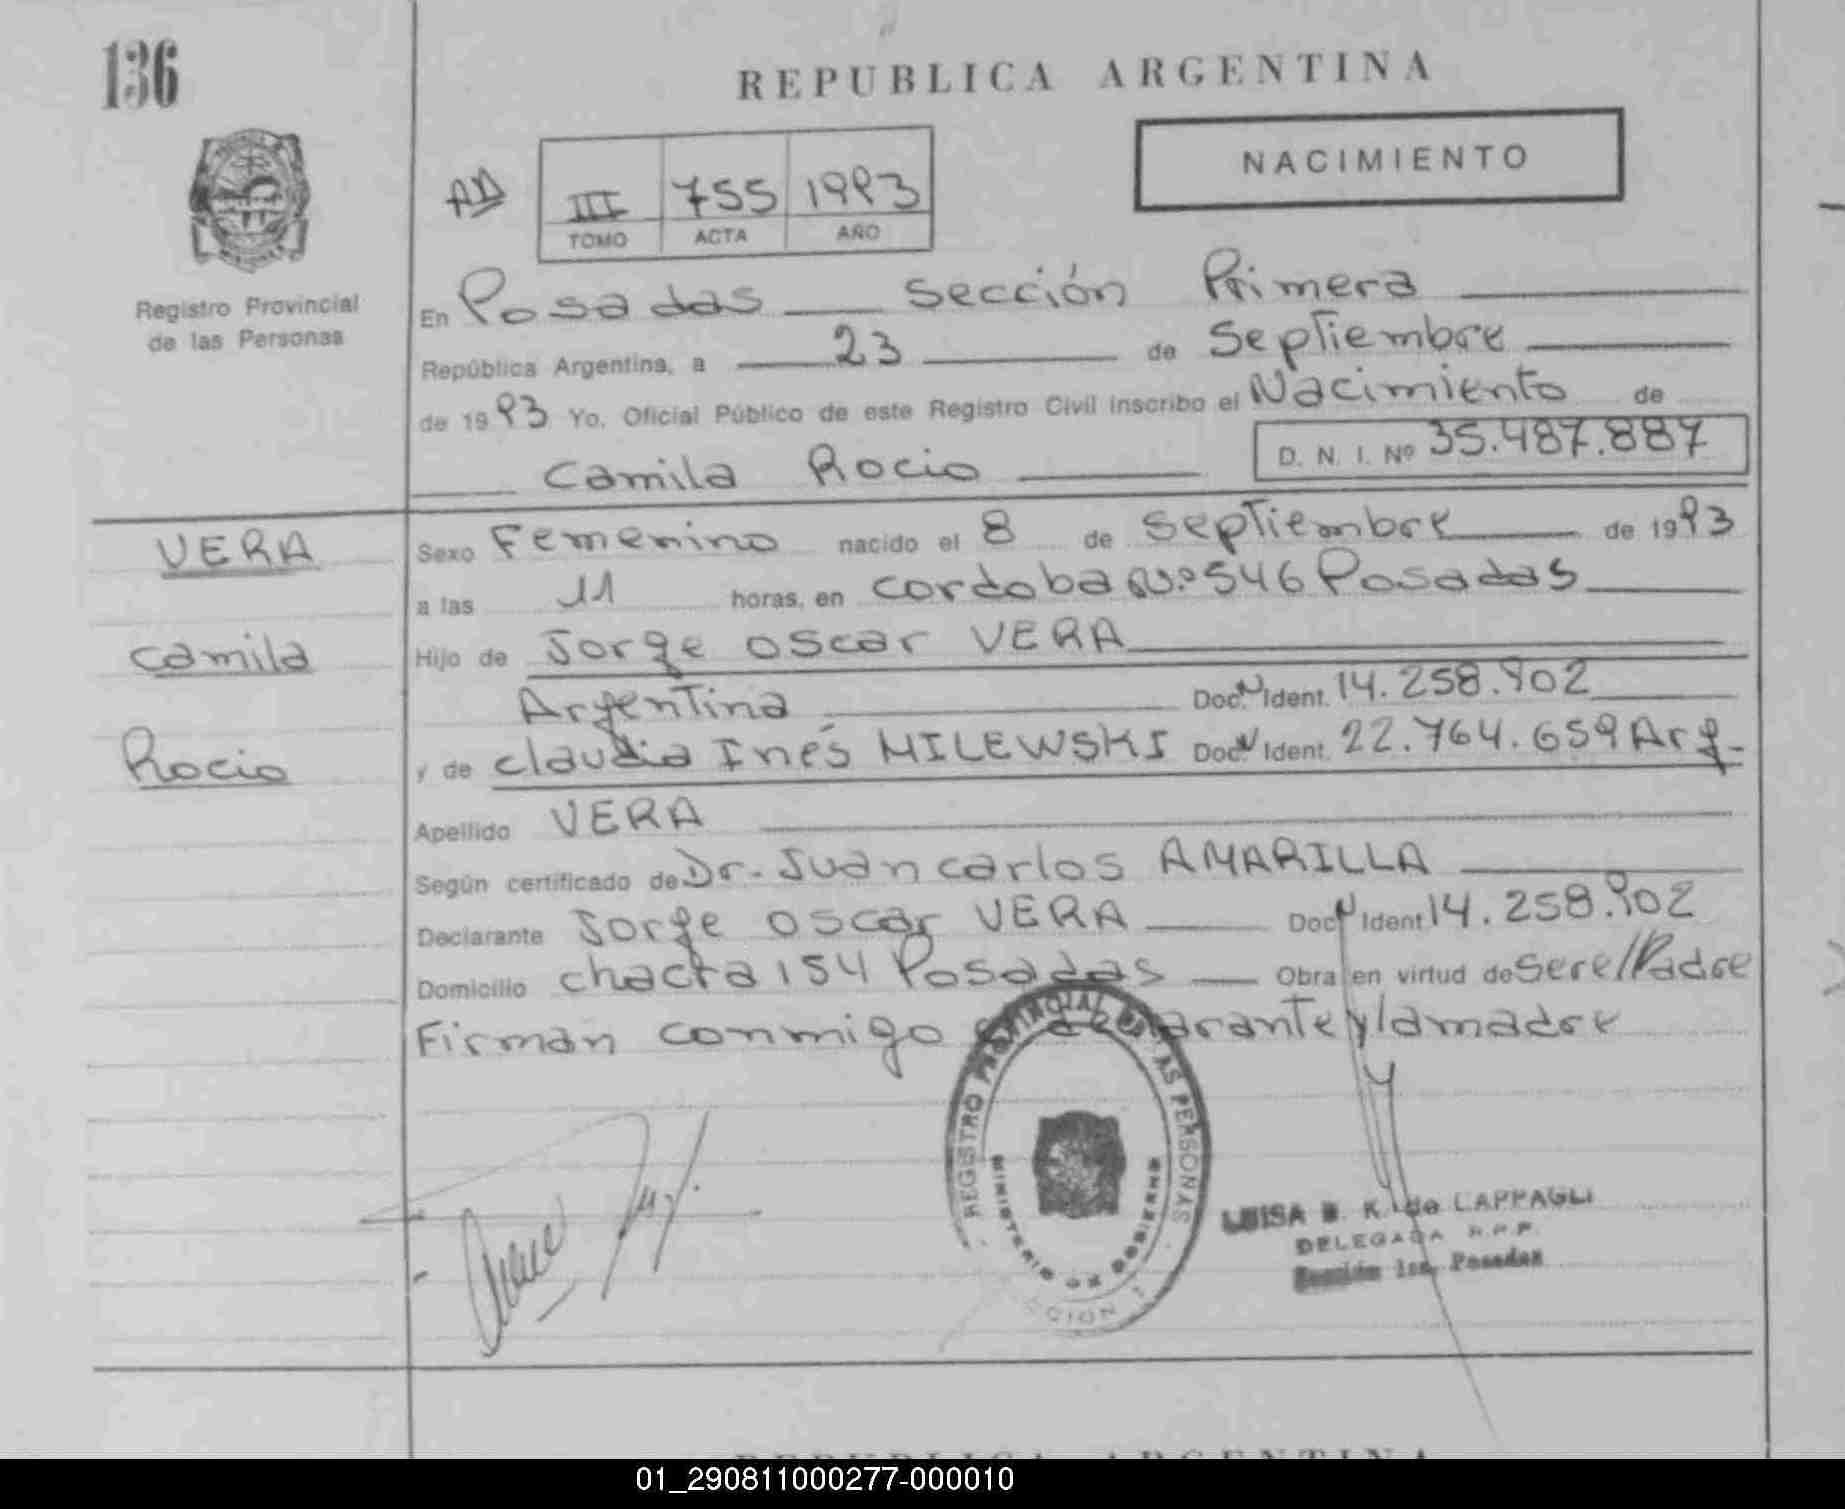 136
REPUBLICA ARGENTINA
NACIMIENTO
AD
III 755 1993
TOMO ACTA AÑO
Registro Provincial
de las Personas
En Posadas sección Primera
República Argentina, a 23 de Septiembre
de 1993 Yo, Oficial Público de este Registro Civil inscribo el Nacimiento de
Camila Rocio D. N. I. Nº 35.487.887
VERA
Camila
Rocio
Sexo Femenino nacido el 8 de septiembre de 1993
a las 11 horas, en cordoba Nº 546 Posadas
Hijo de Jorge Oscar VERA
Argentina Doc. N Ident. 14.258.902
y de Claudia Inés MILEWSKI Doc. N Ident. 22.764.659 Arg.
Apellido VERA
Según certificado de Dr. Juan carlos AMARILLA
Declarante Jorge Oscar VERA Doc. N Ident. 14.258.902
Domicilio chacra 154 Posadas Obra en virtud de ser el Padre
Firman conmigo declarante y la madre
REGISTRO PROVINCIAL DE LAS PERSONAS
MINISTERIO DE GOBIERNO
LUISA K. de LAPPAGLI
DELEGADA R.P.P.
Sección 1ra. Posadas
REPUBLICA ARGENTINA
01_290811000277-000010